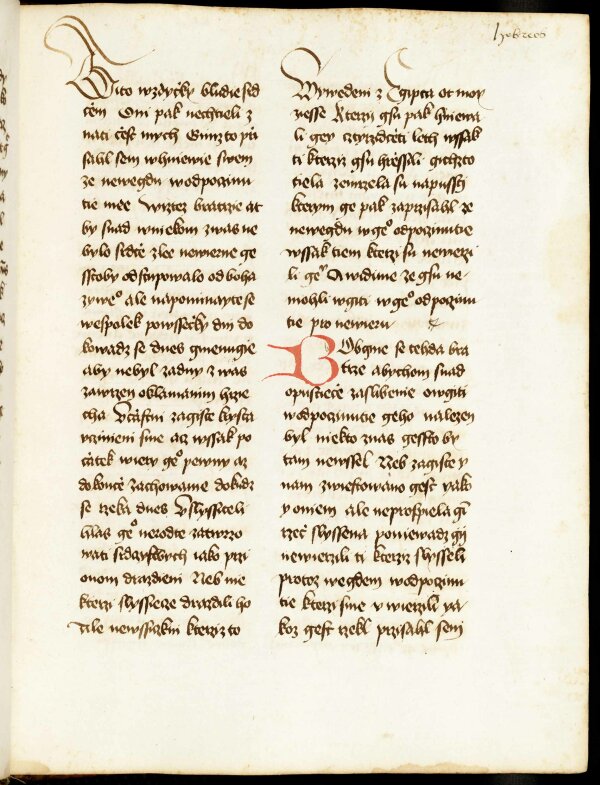 hebreos
Tito wzdycky bludie srd
cem Oni pak nechtieli z
nati cest mych Gimz to prz
sahl sem whniewie swem
ze newegdu wodpoczinu
tie mee Wizrez bratrzie at
by snad wniekom zwas ne
bylo srdce zlee newierne ge
sstoby odstupowalo od boha
zyweo ale napominayte se
wespolek powssecky dni do
kowadz se dnes gmenugie
aby nebyl zadny z was
zawrzen oklamanim hrzie
cha Vcastni zagiste krysta
vczinieni sme acz wssak po
czatek wiery geo pewny az
dokonce zachowame dokudz
se rzeka dnes Vslyssiteli
hlas geo nerodte zatwrzo
wati srdczi swych iako przi
onom drazdieni Neb nie
kterzi slyssiece drazdili ho
Ale newssickni kterziz to
Wywedeni z Egipta ot moy
zesse A kterzi gsu pak hniewa
li gey cztyrzidceti leth wssak
ti kterziz gsu hressili gichzto
tiela zemrzela su napussti
kterym ge pak zaprzisahl ze
newegdu w geo odpoczinutie
wssak tiem kterzi su newierzi
li gemu A widime ze gsu ne
mohli wgiti w geo odpoczinu
tie pro newieru
Bobgme se tehda bra
trzie abychom snad
opustiece zaslibenie owgiti
wodpoczinutie geho nalezen
byl niekto znas gessto by
tam newssel Neb zagiste y
nam zwiestowano gest yako
y oniem ale neprospiela gim
rzec slyssena poniewadz gi
newierzili ti kterziz slysseli
protoz wegdem wodpoczinu
tie kterzi sme vwierzili ya
koz gest rzekl przisahl sem